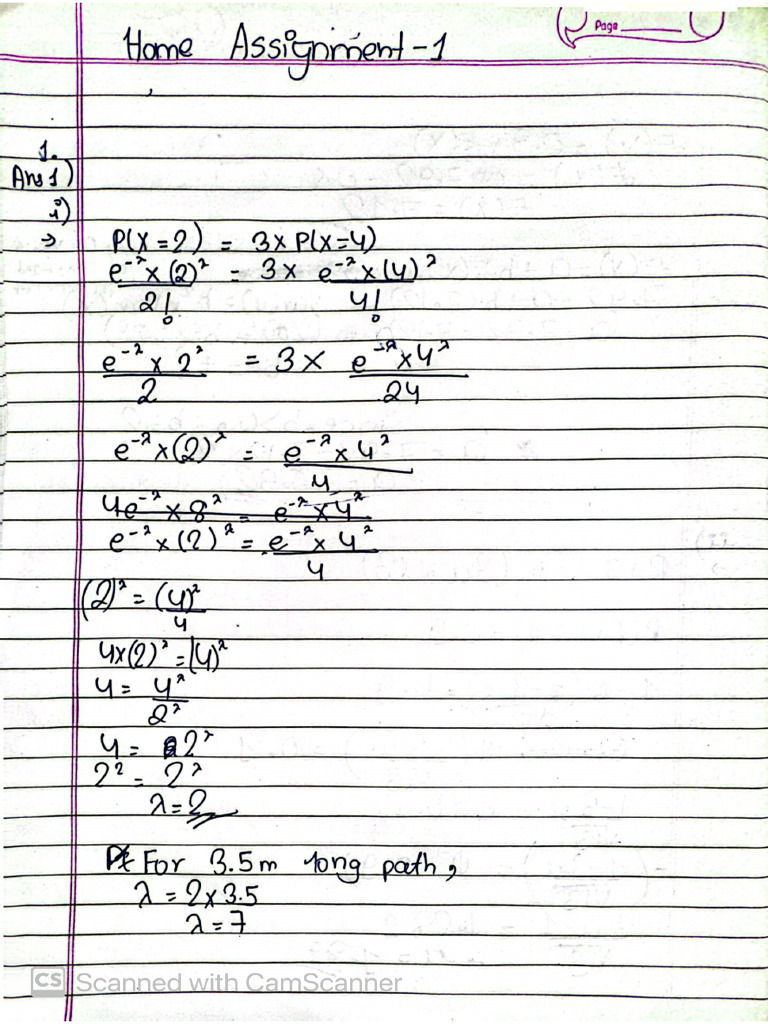 Page
Home Assignment-1
1.
Ans 1)
i)
→ P(X=2) = 3×P(X=4)
e^-λ × (2)^λ / 2! = 3× e^-λ × (4)^λ / 4!
e^-λ × 2^λ / 2 = 3× e^-λ × 4^λ / 24
e^-λ × (2)^λ = e^-λ × 4^λ / 4
4e^-λ × 8^λ = e^-λ × 4^λ
e^-λ × (2)^λ = e^-λ × 4^λ / 4
(2)^λ = (4)^λ / 4
4×(2)^λ = (4)^λ
4 = 4^λ / 2^λ
4 = 2^λ
2^2 = 2^λ
λ=2
For 3.5m long path,
λ = 2×3.5
λ = 7
CS Scanned with CamScanner